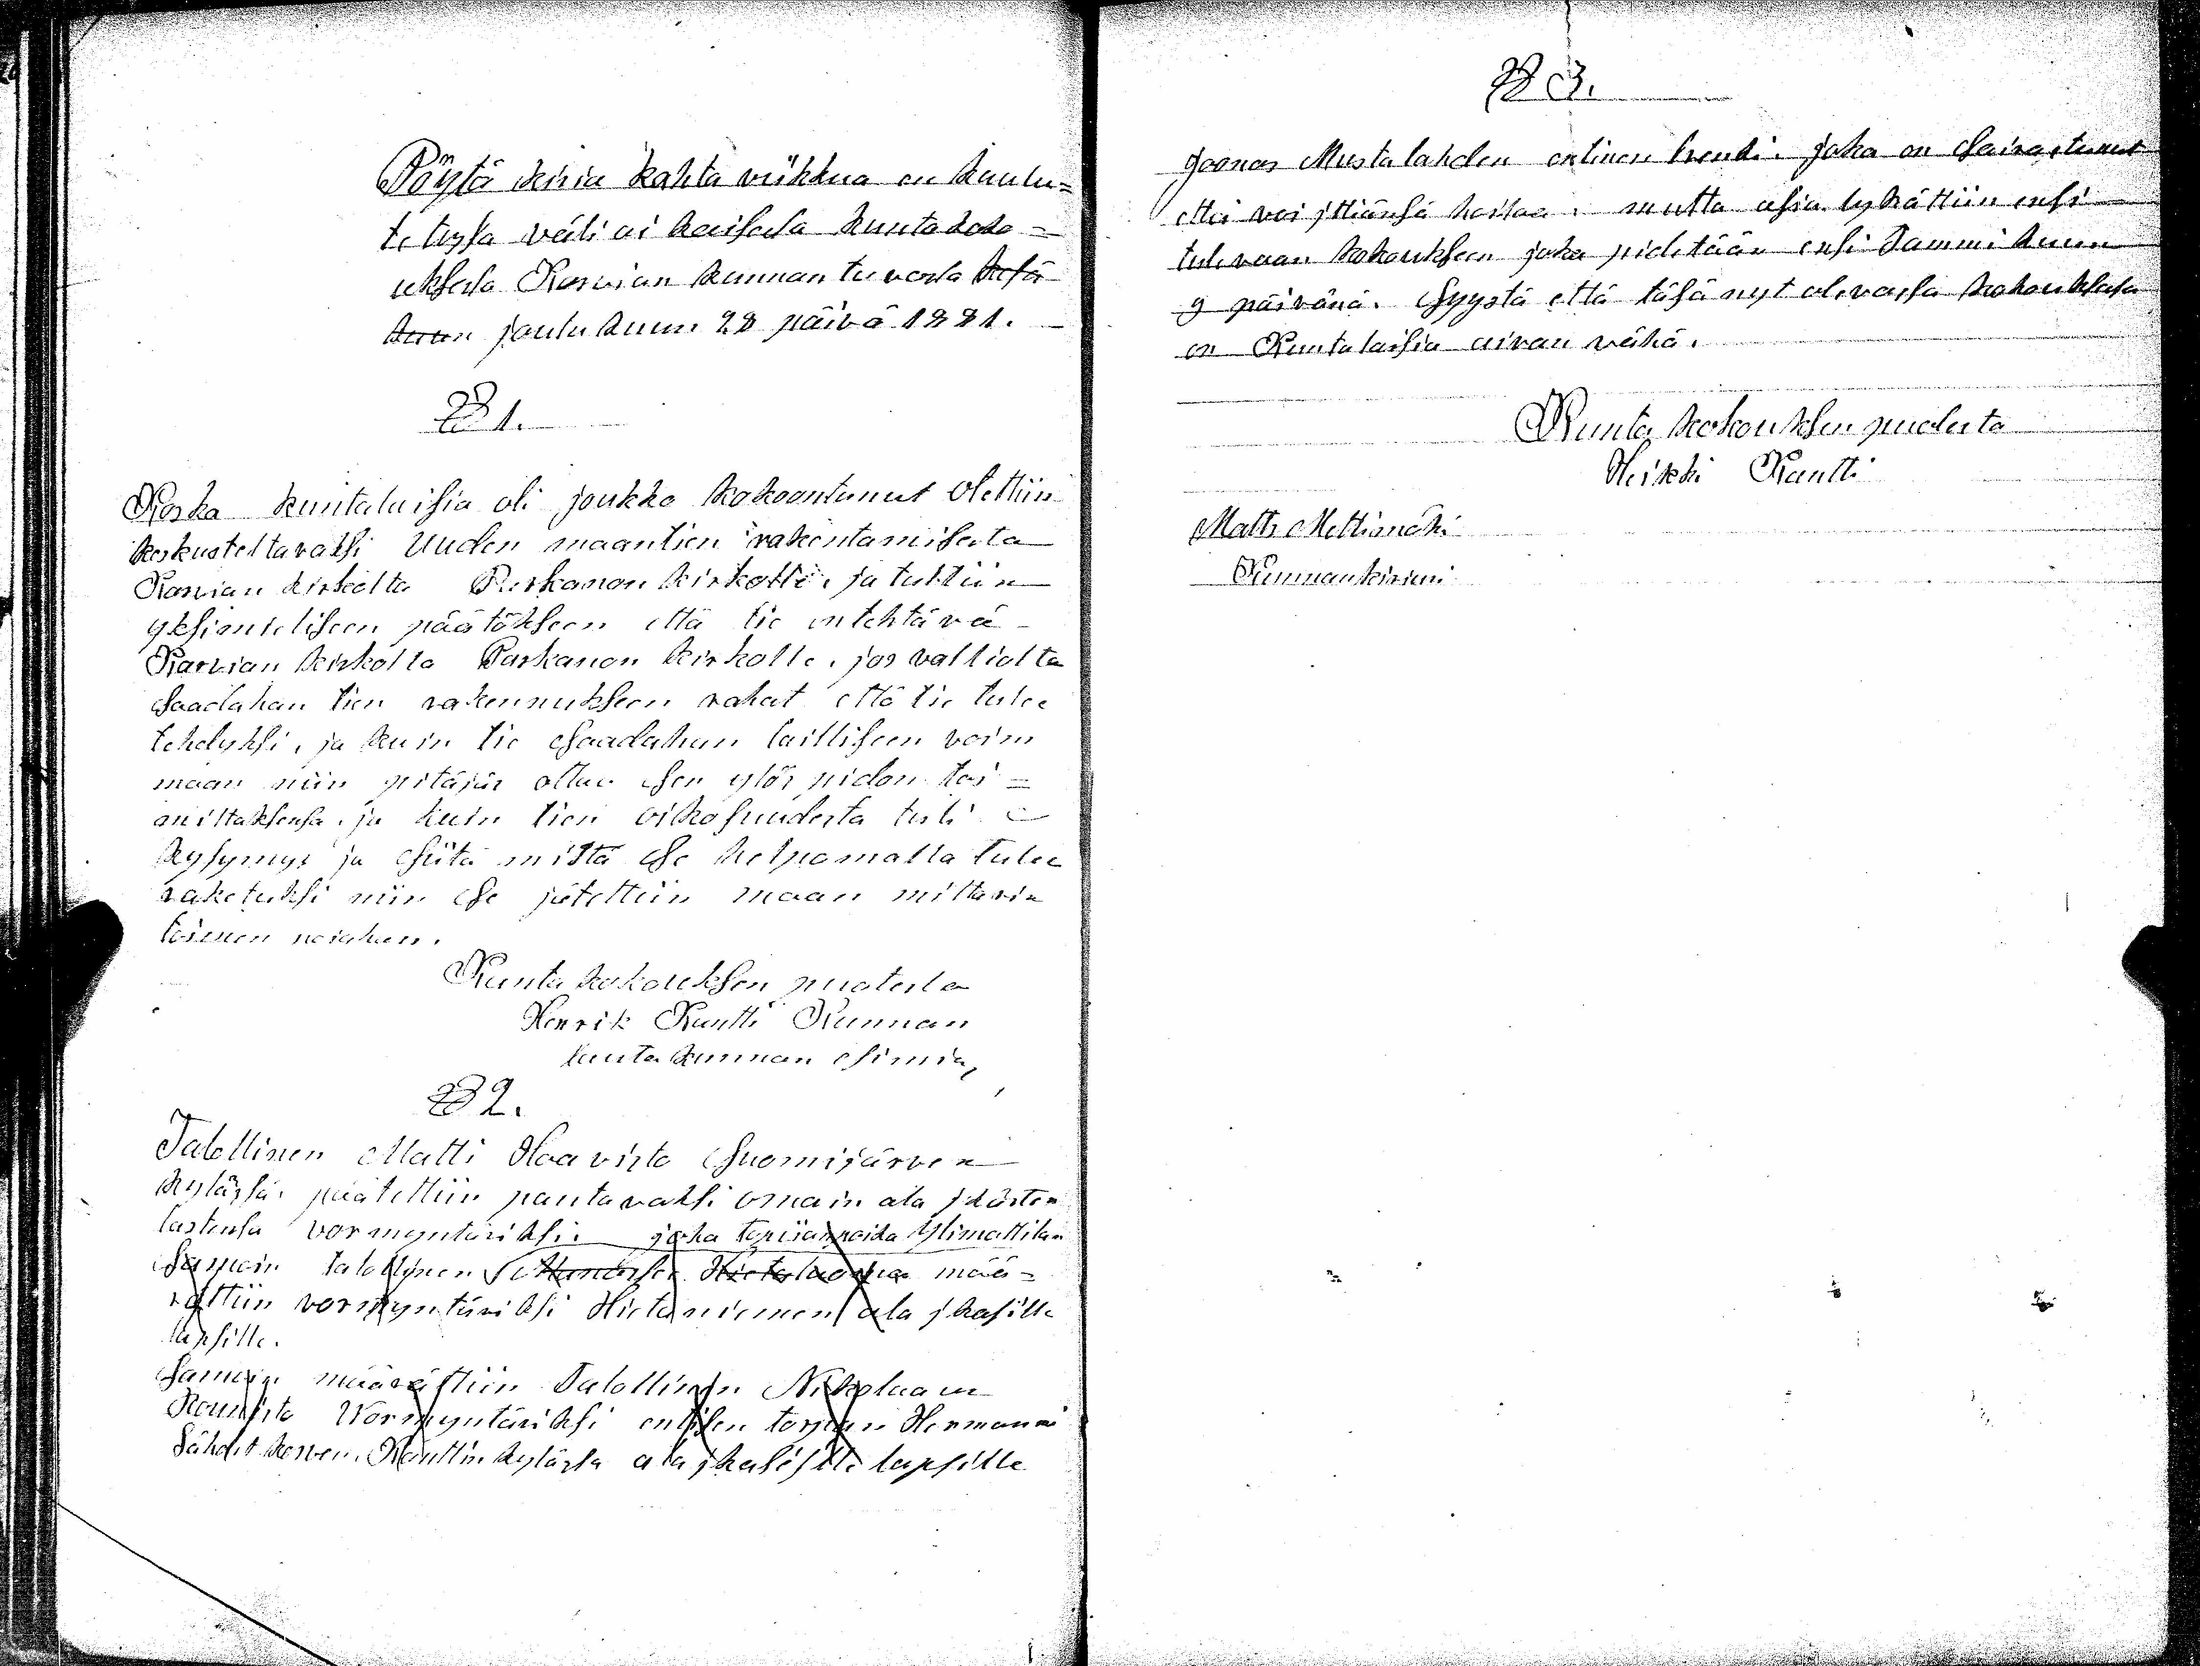 Pöytä kirja kahta viikkua en kuulu=
tetussa väli ai kaisesta kunta koko=
uksesta Karvian kunnan tuvasta kesä
kuun joulukuun 28 päivä 1881.
§ 1.
Koska kuntalaisia oli joukko kokoontunut otettiin
keskusteltavaksi Uuden maantien rakentamisesta
Karvian kirkolta Parkanon kirkolle, ja tultiin
yksimieliseen päätökseen että tie on tehtävä
Karvian kirkolta Parkanon kirkolle, jos valtiolta
saadahan tien rakennukseen rahat että tie tulee
tehdyksi, ja kuin tie saadahan lailliseen voim
maan niin pitäjäs ottaa sen ylös pidon toi=
mittaksensa, ja kuin tien oikosuudesta tuli
kysymys ja siitä mistä se helpomalla tulee
raketuksi niin se jätettiin maan mittarin
toimen nojahan.
Kunta kokouksen puolesta
Henrik Kantti Kunnan
lautakunnan esimies,
§ 2.
Talollinen Matti Haavisto Suomijärven
kylässä, päätettiin pantavaksi omain ala jkästen
lastensa vormyntäriksi. joka Ylimattilan
Samoin talollinen määrättiin
vormyntäriksi Hietaniemen ala jkäsille
lapsille.
Samoin määrättiin Talollinen Nikolaus
Rounisto Vormyntäriksi entisen torpan Hermanni
Sähderkorven Kanttin kylässä ala jkäisille lapsille
§ 3.
Joonas Mustalahden entinen renki. joka on Sairastunut
ettei voi jttiänsä hoitaa. mutta asia lykättiin ensi
tulevaan kokoukseen joka pidetään ensi Tammi kuun
9 päivänä. Syystä että täsä nyt olevassa kokouksesa
on Kuntalaisia aivan vähä.
Kunta kokouksen puolesta
Heikki Kantti
Matts Mettiomäki
Kunnankirjuri